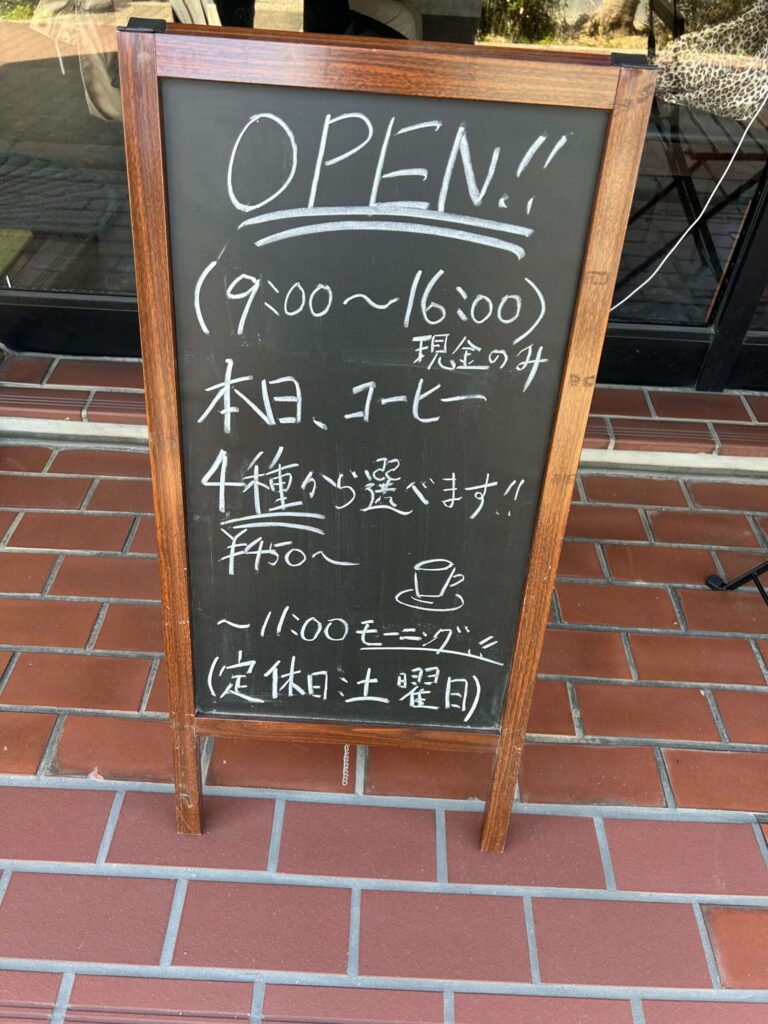 OPEN!!
(9:00～16:00)
現金のみ
本日、コーヒー
4種から選べます!!
¥450～
～11:00 モーニング!!
(定休日:土曜日)